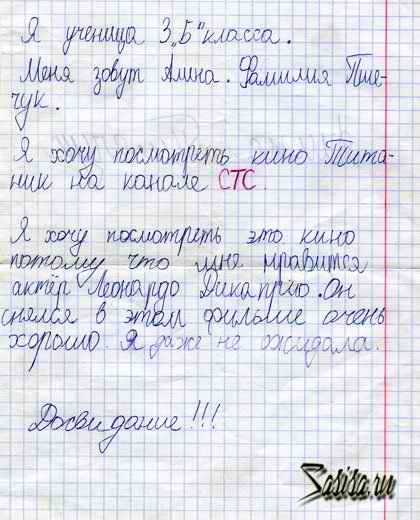 Я ученица 3„Б" класса.
Меня зовут Алина. Фамилия Пше-
чук.
Я хочу посмотреть кино Тита-
ник на канале СТС.
Я хочу посмотреть это кино
потому что мне нравится
актёр Леонардо Дикаприо. Он
снялся в этом фильме очень
хорошо. Я даже не ожидала.
Досвидание!!!
Sasisa.ru